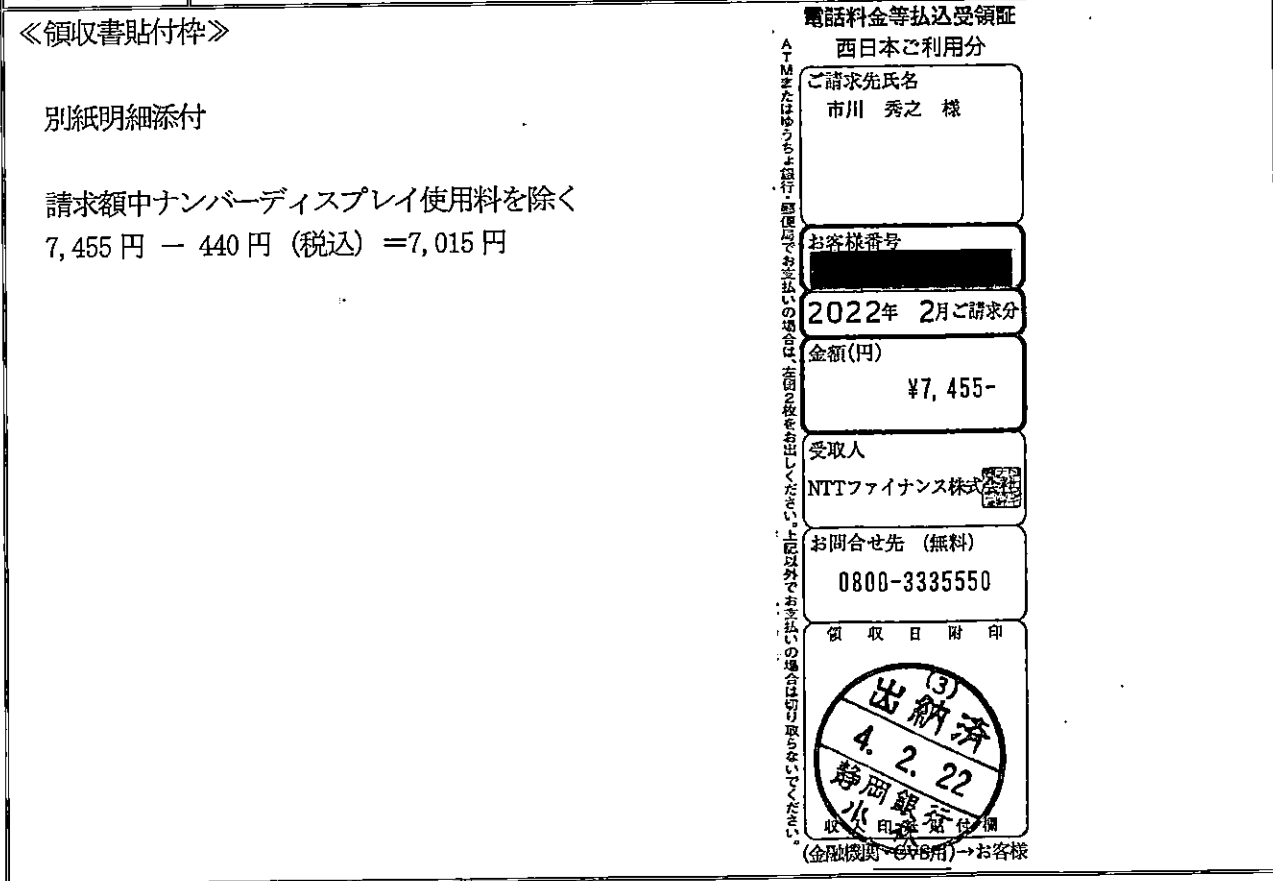 ≪領収書貼付枠≫
別紙明細添付
請求額中ナンバーディスプレイ使用料を除く
7,455円 － 440円（税込）＝7,015円
電話料金等払込受領証
西日本ご利用分
ATMまたはゆうちょ銀行・郵便局でお支払いの場合は、左側2枚をお出しください。上記以外でお支払いの場合は切り取らないでください。
ご請求先氏名
市川 秀之 様
お客様番号
2022年 2月ご請求分
金額(円)
¥7,455-
受取人
NTTファイナンス株式会社
お問合せ先 (無料)
0800-3335550
領収日附印
(3)
出納済
4. 2. 22
静岡銀行
収入印紙貼付欄
(金融機関・CVS用)→お客様